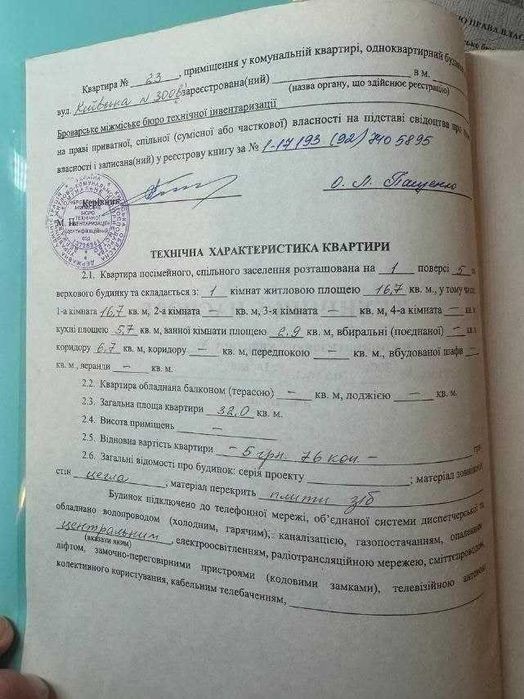 Квартира № 23, приміщення у комунальній квартирі, одноквартирний
вул. Київська зареєстрована(ний) в м.
(назва органу, що здійснює реєстрацію)
Броварське міжміське бюро технічної інвентаризації
на праві приватної, спільної (сумісної або часткової) власності на підставі свідоцтва про
власності і записана(ний) у реєстрову книгу за №
Керівник О. Л. Пащенко
М. П.
ТЕХНІЧНА ХАРАКТЕРИСТИКА КВАРТИРИ
2.1. Квартира посімейного, спільного заселення розташована на 1 поверсі 5
верхового будинку та складається з: 1 кімнат житловою площею 16,7 кв. м., у тому числі:
1-а кімната 16,7 кв. м, 2-а кімната – кв. м, 3-я кімната – кв. м, 4-а кімната – кв.
кухні площею 5,7 кв. м, ванної кімнати площею 2,9 кв. м, вбиральні (поєднаної) –
коридору 6,7 кв. м, коридору – кв. м, передпокою – кв. м., вбудованої шафи –
кв. м., веранди – кв. м.
2.2. Квартира обладнана балконом (терасою) – кв. м, лоджією – кв. м.
2.3. Загальна площа квартири 32,0 кв. м.
2.4. Висота приміщень –
2.5. Відновна вартість квартири – 5 грн. 76 коп – грн.
2.6. Загальні відомості про будинок: серія проекту ; матеріал
стін цегла, матеріал перекрить плити з/б
Будинок підключено до телефонної мережі, об'єднаної системи диспетчерської та
обладнано водопроводом (холодним, гарячим), каналізацією, газопостачанням,
центральним, електроосвітленням, радіотрансляційною мережею, сміттєпроводом,
(вказати яким)
ліфтом, замочно-переговорними пристроями (кодовими замками), телевізійною антеною
колективного користування, кабельним телебаченням,